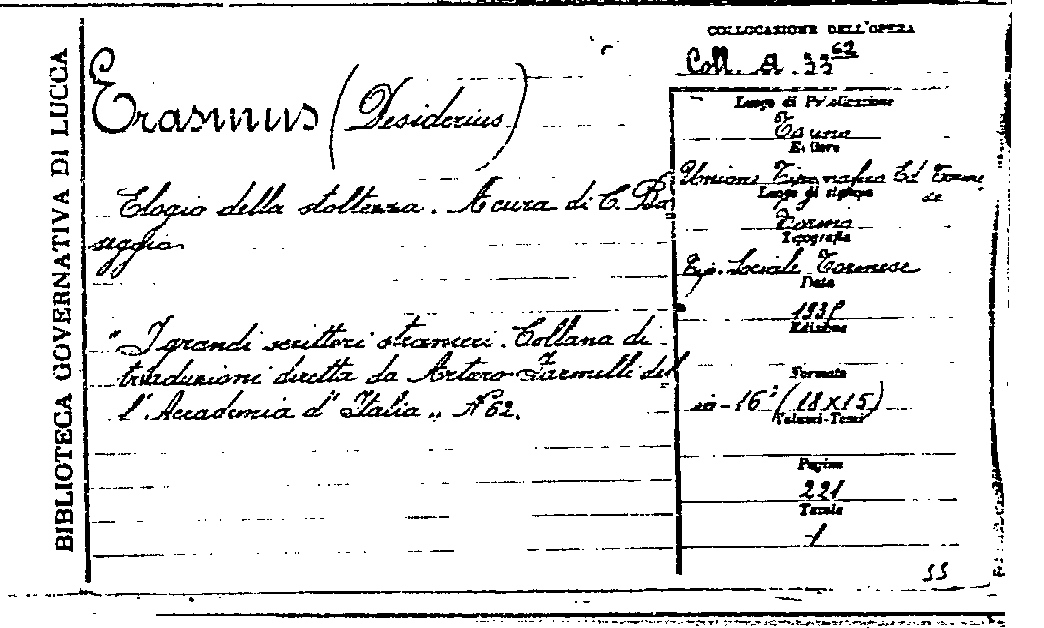 BIBLIOTECA GOVERNATIVA DI LUCCA
Erasmus (Desiderius)
Elogio della stoltezza. A cura di C. Ba
seggio
"I grandi scrittori stranieri. Collana di
traduzioni diretta da Arturo Farinelli del
l'Accademia d'Italia" N 62.
COLLOCAZIONE DELL'OPERA
Coll. A. 33 62
Luogo di Pubblicazione
Torino
Editore
Unione Tipografico Ed. Torine
se
Luogo di stampa
Torino
Tipografia
Tip. Sociale Torinese
Data
Edizione
Formato
in-16° (18x15)
Volumi-Tomi
Pagine
221
Tavole
1